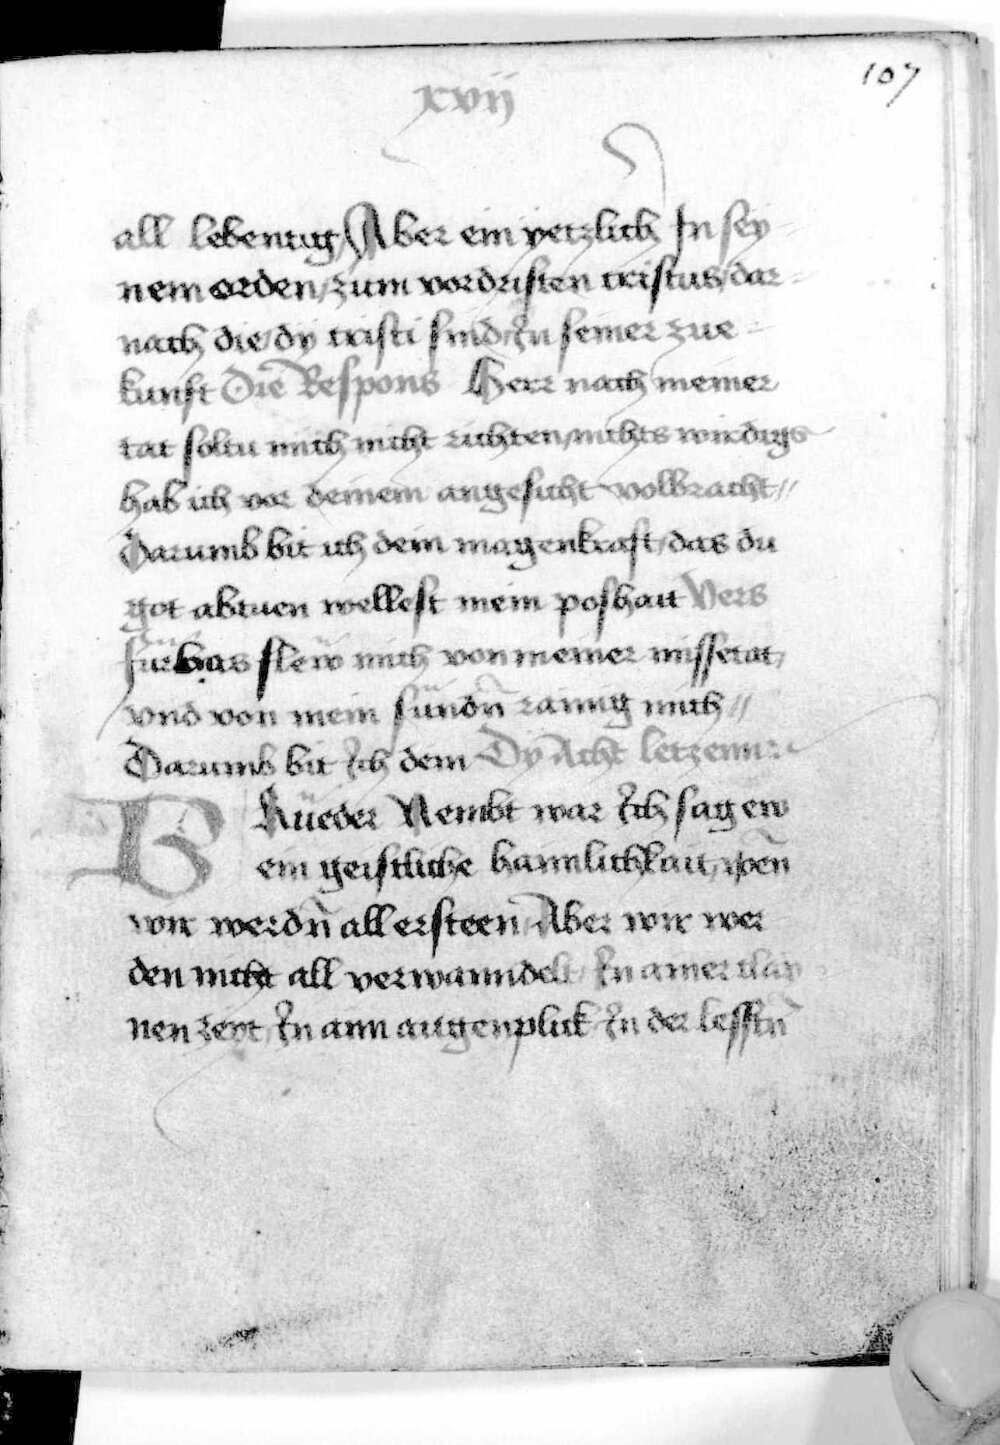 xvij
107
all lebentig Aber ein yetzlich In sey
nem orden / zum vordristen cristus / dar
nach die / dy cristi sind / In seiner zue
kunft Die Respons Herr nach meiner
tat soltu mich nicht richten / nichts wirdigs
hab ich vor deinem angesicht volbracht //
Darumb bit ich dein magenkraft / das du
got abtuen wellest mein poshait Vers
fürbas flew mich von meiner missetat /
vnd von mein sündn̄ rainig mich //
Darumb bit Ich dein Dy Acht letzenn
BRüeder Nembt war Ich sag ew
ein geistliche haimlichkait / wen̄
wir werdn̄ all ersteen / Aber wir wer
den nicht all verwanndelt / In ainer clay
nen zeyt / In ainn augenplick / In der lesstn̄